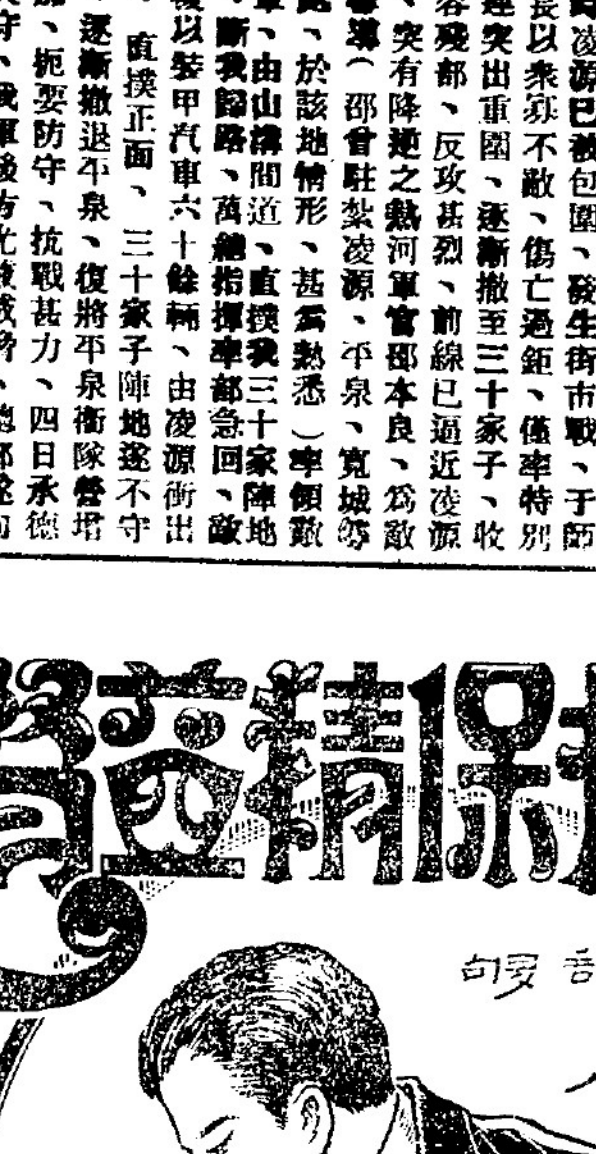 凌源已被包圍、發生街市戰、于師
長以衆寡不敵、傷亡過鉅、僅率特別
突出重圍、逐漸撤至三十家子、收
容殘部、反攻甚烈、前線已逼近凌源
、突有降逆之熱河軍官邵本良、爲敵
導（邵曾駐紮凌源、平泉、寬城等
、於該地情形、甚爲熟悉）率領敵
、由山溝間道、直撲我三十家陣地
、斷我歸路、萬總指揮率部急回、敵
以裝甲汽車六十餘輛、由凌源衝出
、直撲正面、三十家子陣地遂不守
、逐漸撤退平泉、復將平泉衞隊營堵
、扼要防守、抗戰甚力、四日承德
守、我軍後方尤
保精